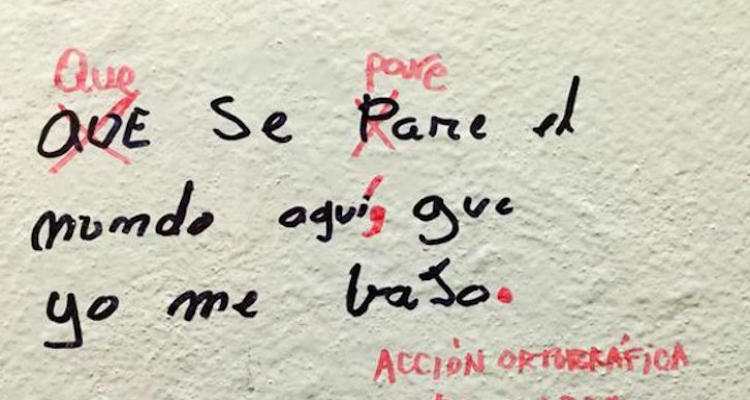 Que pare
QUE se Pare el
mundo aquí, que
yo me bajo.
ACCIÓN ORTOGRÁFICA